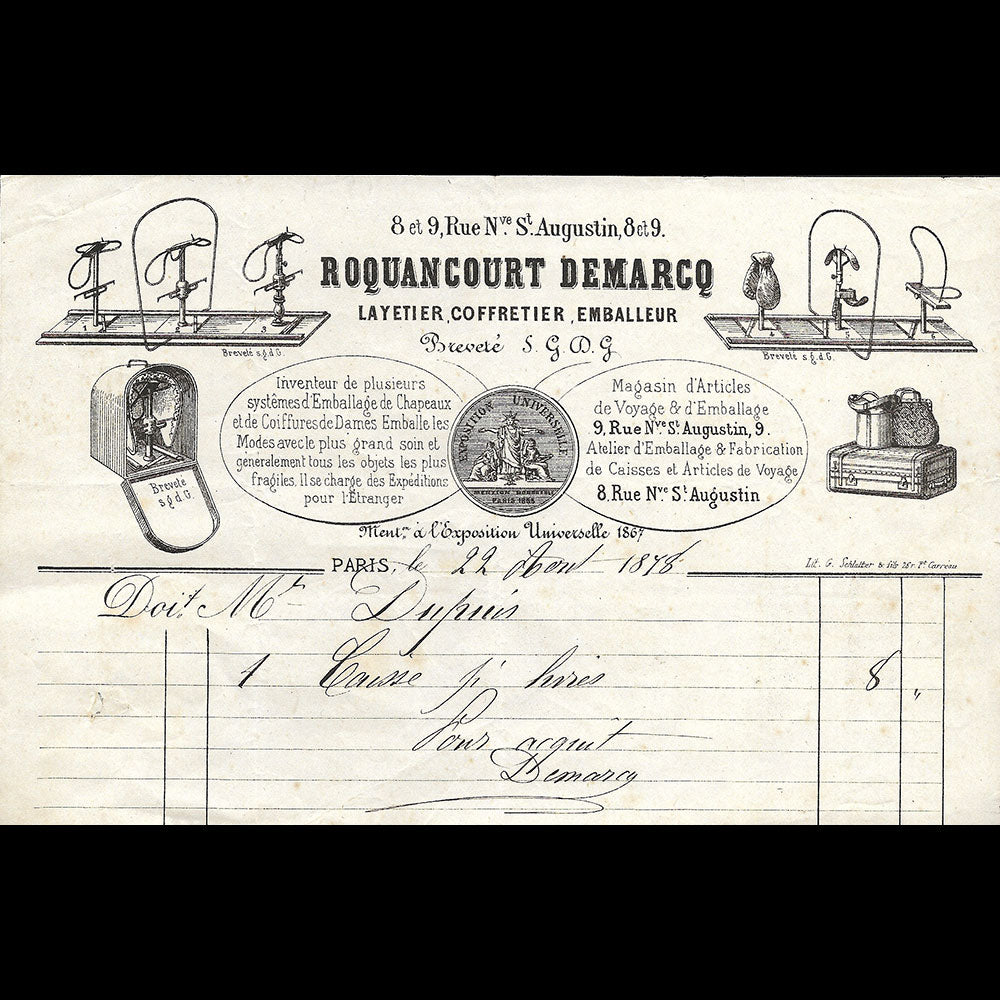 8 et 9, Rue Nve St. Augustin, 8 et 9.
ROQUANCOURT DEMARCQ
LAYETIER, COFFRETIER, EMBALLEUR
Breveté S. G. D. G
1 2 3
Breveté s.g.d.G.
4 5 6
Breveté s.g.d.G.
Breveté
s.g.d.G.
Inventeur de plusieurs
systêmes d'Emballage de Chapeaux
et de Coiffures de Dames Emballe les
Modes avec le plus grand soin et
généralement tous les objets les plus
fragiles, Il se charge des Expéditions
pour l'Étranger
EXPOSITION UNIVERSELLE
MENTION HONORABLE
PARIS
Magasin d'Articles
de Voyage & d'Emballage
9, Rue Nve St. Augustin, 9.
Atelier d'Emballage & Fabrication
de Caisses et Articles de Voyage
8, Rue Nve St. Augustin
Mentn à l'Exposition Universelle 1867
PARIS, le 22 Aout 1878
Lit. G. Schlatter & fils
Doit Mr Dupuis
1 Caisse pr livres 8 "
Pour acquit
Demarcq